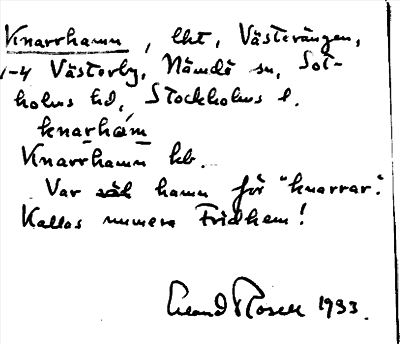 Knarrhamn, lht, Västerängen,
1-4 Västerby, Nämdö sn, Sot-
holms hd, Stockholms l.
knarham
Knarrhamn kb.
Var hamn för "knarrar".
Kallas numera Fridhem!
Erland Rosell 1933.